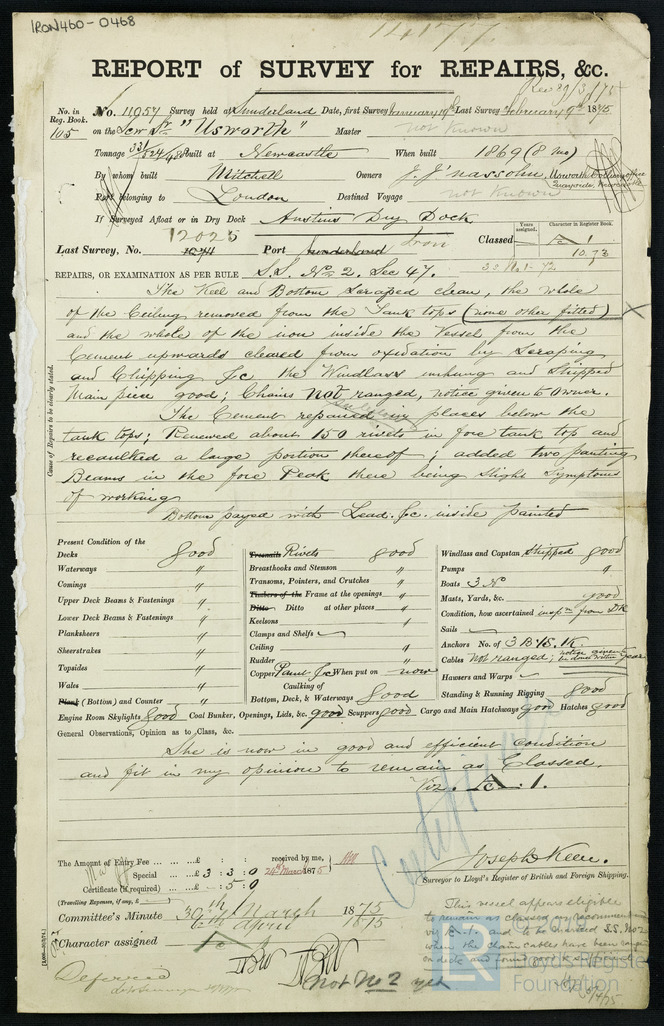 IRON460-0468
14177
REPORT of SURVEY for REPAIRS, &c.
No. in Reg. Book. No. 11957 Survey held at Sunderland Date, first Survey January 19th Last Survey February 9th 1875
105 on the Scw Sr "Usworth" Master not known
Tonnage built at Newcastle When built 1869 (8 mo)
By whom built Mitchell Owners J. J. Nassohn, Usworth Colliery office Quayside, Newcastle
Port belonging to London Destined Voyage not known
If Surveyed Afloat or in Dry Dock Austins Dry Dock
Years assigned. Character in Register Book.
12025 Iron
Last Survey, No. Port Sunderland Classed A 1
10.73
REPAIRS, OR EXAMINATION AS PER RULE S.S. No 2. Sec 47.
Cause of Repairs to be clearly stated.
The Keel and Bottom Scraped clean, the whole
of the Ceiling removed from the Tank tops (none other fitted)
and the whole of the iron inside the Vessel from the
Cement upwards cleared from oxidation by Scraping
and Chipping &c the Windlass unhung and Stripped
Main piece good; Chains not ranged, notice given to Owner.
The Cement repaired in places below the
tank tops; Renewed about 150 rivets in fore tank top and
recaulked a large portion thereof; added two panting
Beams in the fore Peak there being Slight Symptoms
of working
Bottom payed with Lead &c. inside painted
Present Condition of the
Decks good
Waterways "
Comings "
Upper Deck Beams & Fastenings "
Lower Deck Beams & Fastenings "
Planksheers "
Sheerstrakes "
Topsides "
Wales "
Plank (Bottom) and Counter "
Treenails Rivets good
Breasthooks and Stemson "
Transoms, Pointers, and Crutches "
Timbers of the Frame at the openings "
Ditto Ditto at other places "
Keelsons "
Clamps and Shelfs
Ceiling "
Rudder "
Copper Paint &c When put on now
Caulking of
Bottom, Deck, & Waterways good
Windlass and Capstan Stripped good
Pumps "
Boats 3 No
Masts, Yards, &c. good
Condition, how ascertained insp'n from Dk
Sails
Anchors No. of 3 B. 1S. 1K
Cables Not ranged; notice given
Hawsers and Warps
Standing & Running Rigging good
Engine Room Skylights good Coal Bunker, Openings, Lids, &c. good Scuppers good Cargo and Main Hatchways good Hatches good
General Observations, Opinion as to Class, &c.
She is now in good and efficient condition
and fit in my opinion to remain as Classed.
Viz. A 1.
The Amount of Entry Fee ... £ : : received by me,
Special ... £ 3 : 3 : 0 24th March 1875
Certificate (if required) ... - : 5 : 0
(Travelling Expenses, if any, £ )
Certificate
Joseph Keen.
Surveyor to Lloyd's Register of British and Foreign Shipping.
Committee's Minute 30th March 1875
6th April 1875
Character assigned A 1
This vessel appears eligible
to remain as classed as recommended
and to be marked S.S. No 2
when the chain cables have been ranged
on deck and found
Deferred
Not No 2 yet
LR
Lloyd's Register
Foundation